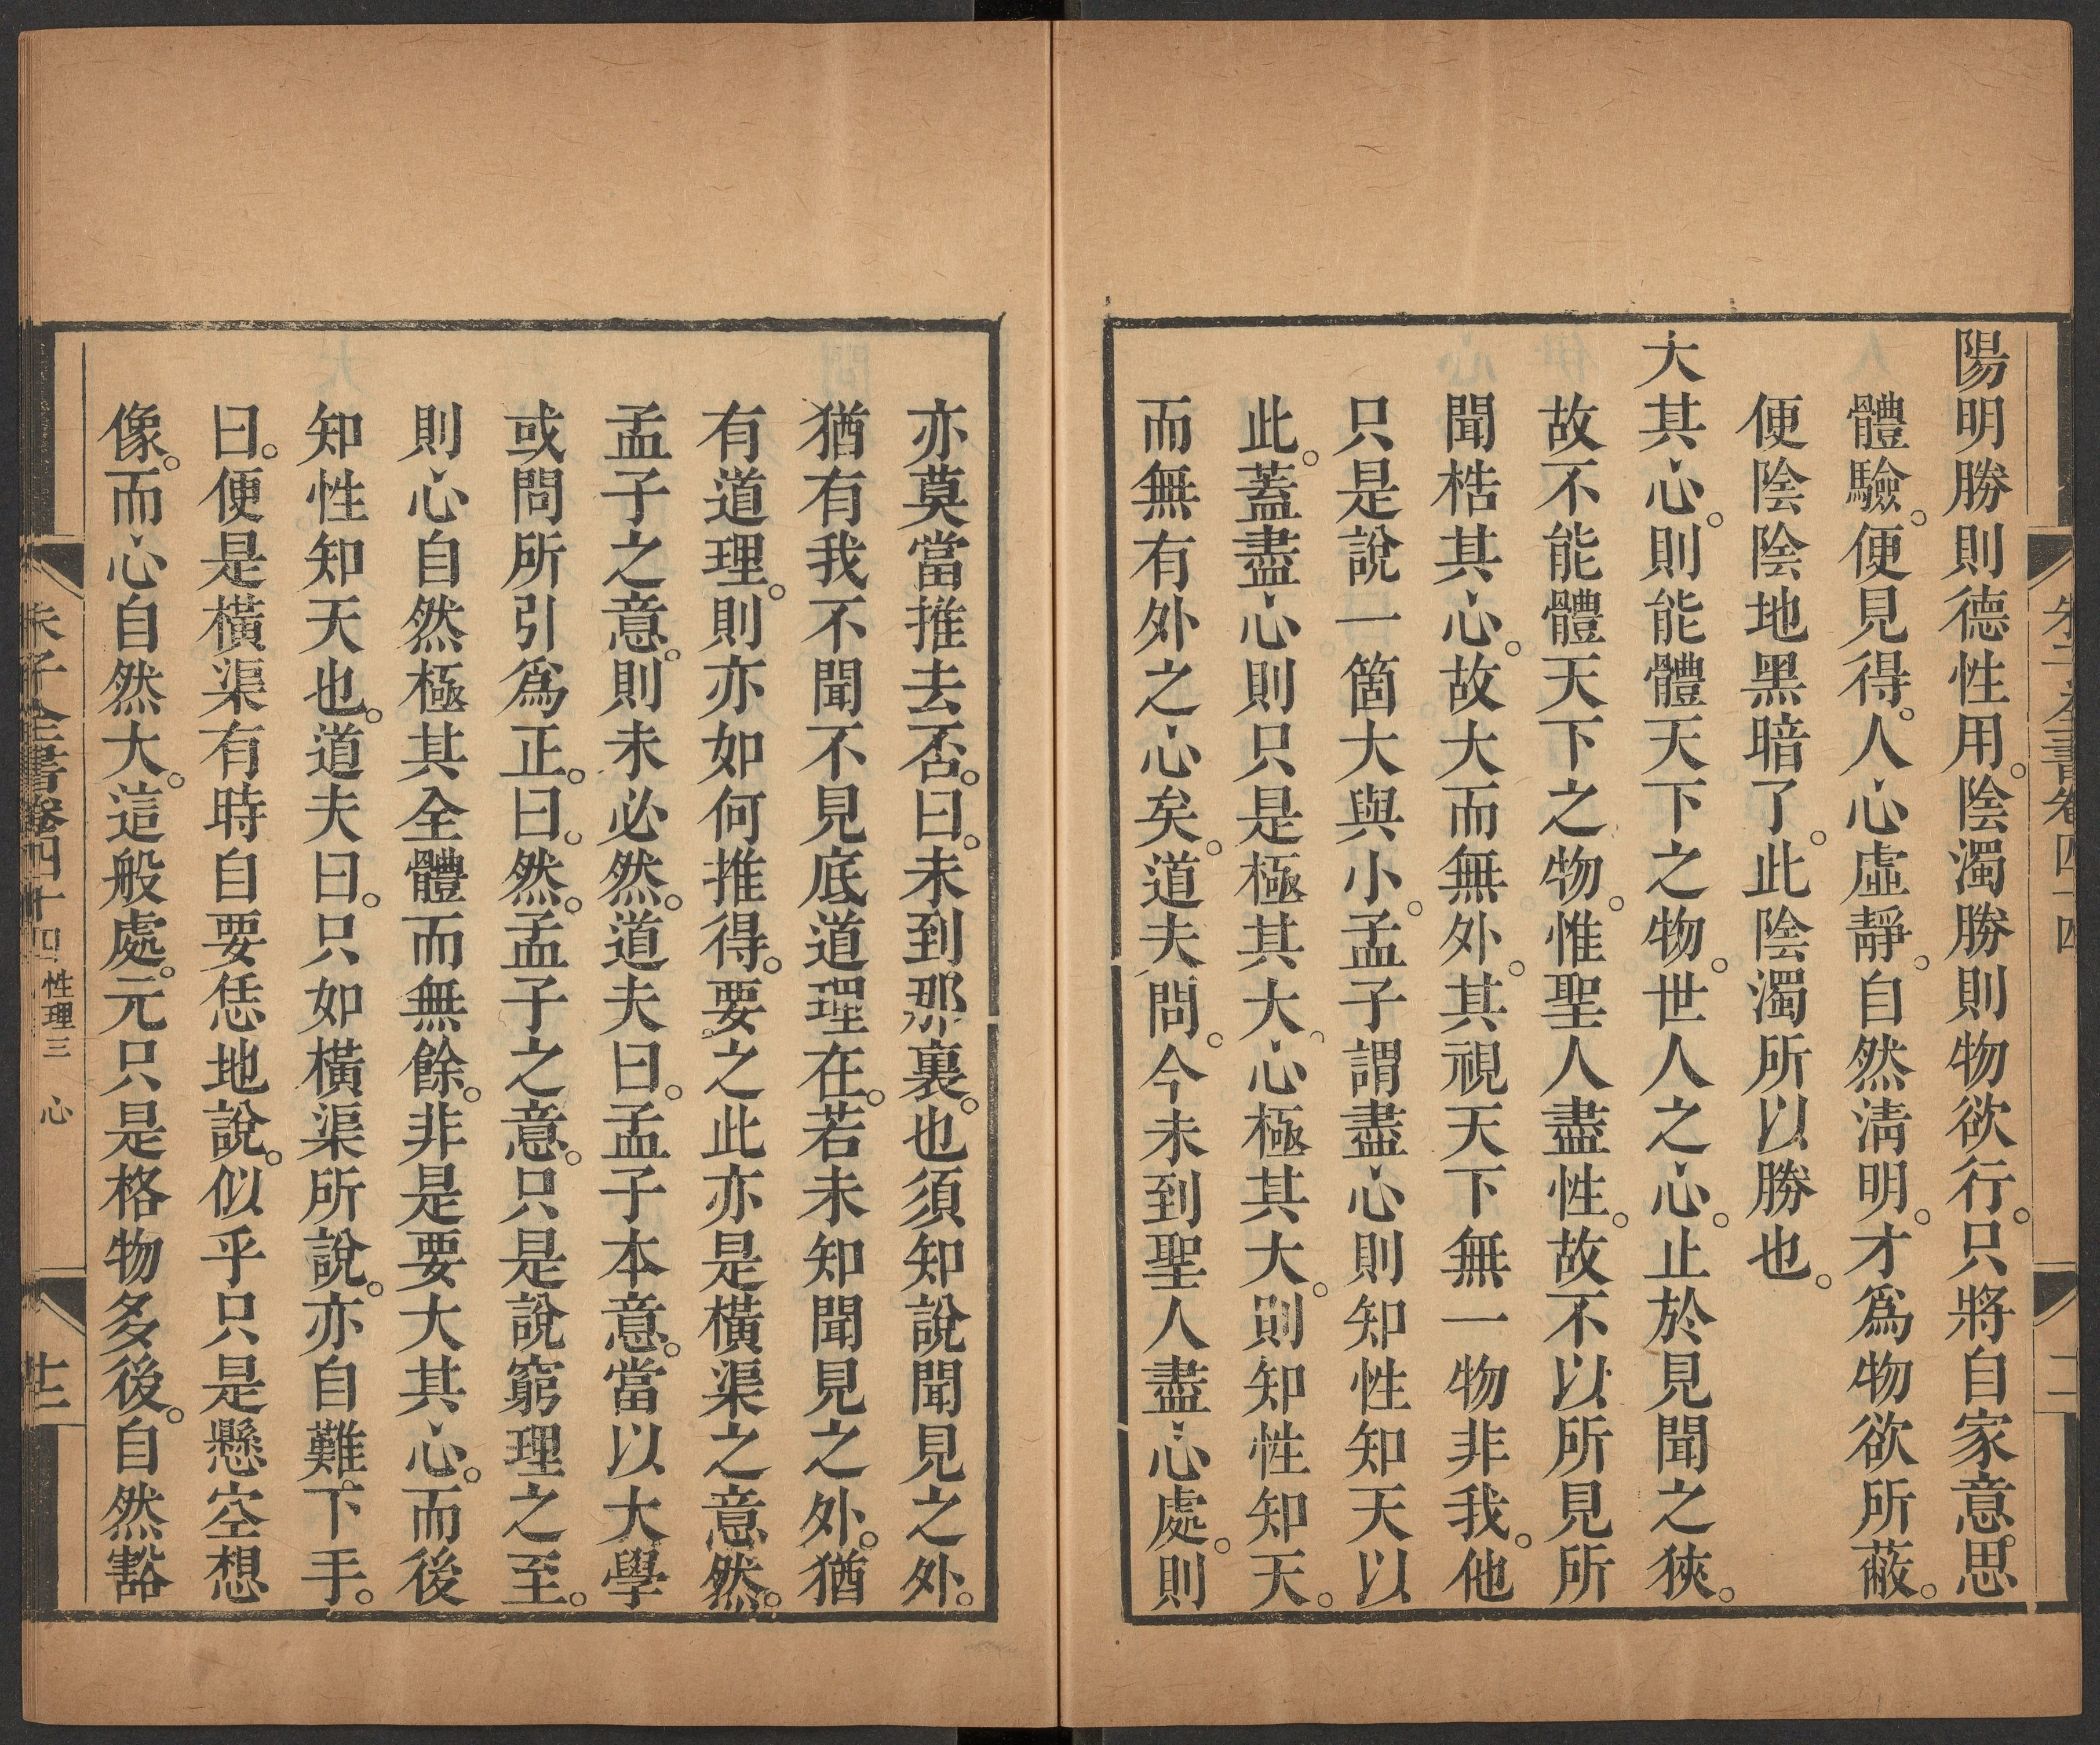 陽明勝則德性用。陰濁勝則物欲行。只將自家意思
體驗。便見得。人心虛靜。自然淸明。才爲物欲所蔽。
便陰陰地黑暗了。此陰濁所以勝也。
大其心。則能體天下之物。世人之心。止於見聞之狹。
故不能體天下之物。惟聖人盡性。故不以所見所
聞梏其心。故大而無外。其視天下無一物非我。他
只是說一箇大與小。孟子謂盡心則知性知天以
此。蓋盡心則只是極其大。心極其大。則知性知天。
而無有外之心矣。道夫問。今未到聖人盡心處。則
亦莫當推去否。曰。未到那裏。也須知說聞見之外。
猶有我不聞不見底道理在。若未知聞見之外。猶
有道理。則亦如何推得。要之此亦是橫渠之意然。
孟子之意。則未必然。道夫曰。孟子本意。當以大學
或問所引爲正。曰。然。孟子之意。只是說窮理之至。
則心自然極其全體而無餘。非是要大其心。而後
知性知天也。道夫曰。只如橫渠所說。亦自難下手。
曰。便是橫渠有時自要恁地說。似乎只是懸空想
像。而心自然大。這般處。元只是格物多後。自然豁
朱子全書卷四十四 性理三 心 廿三